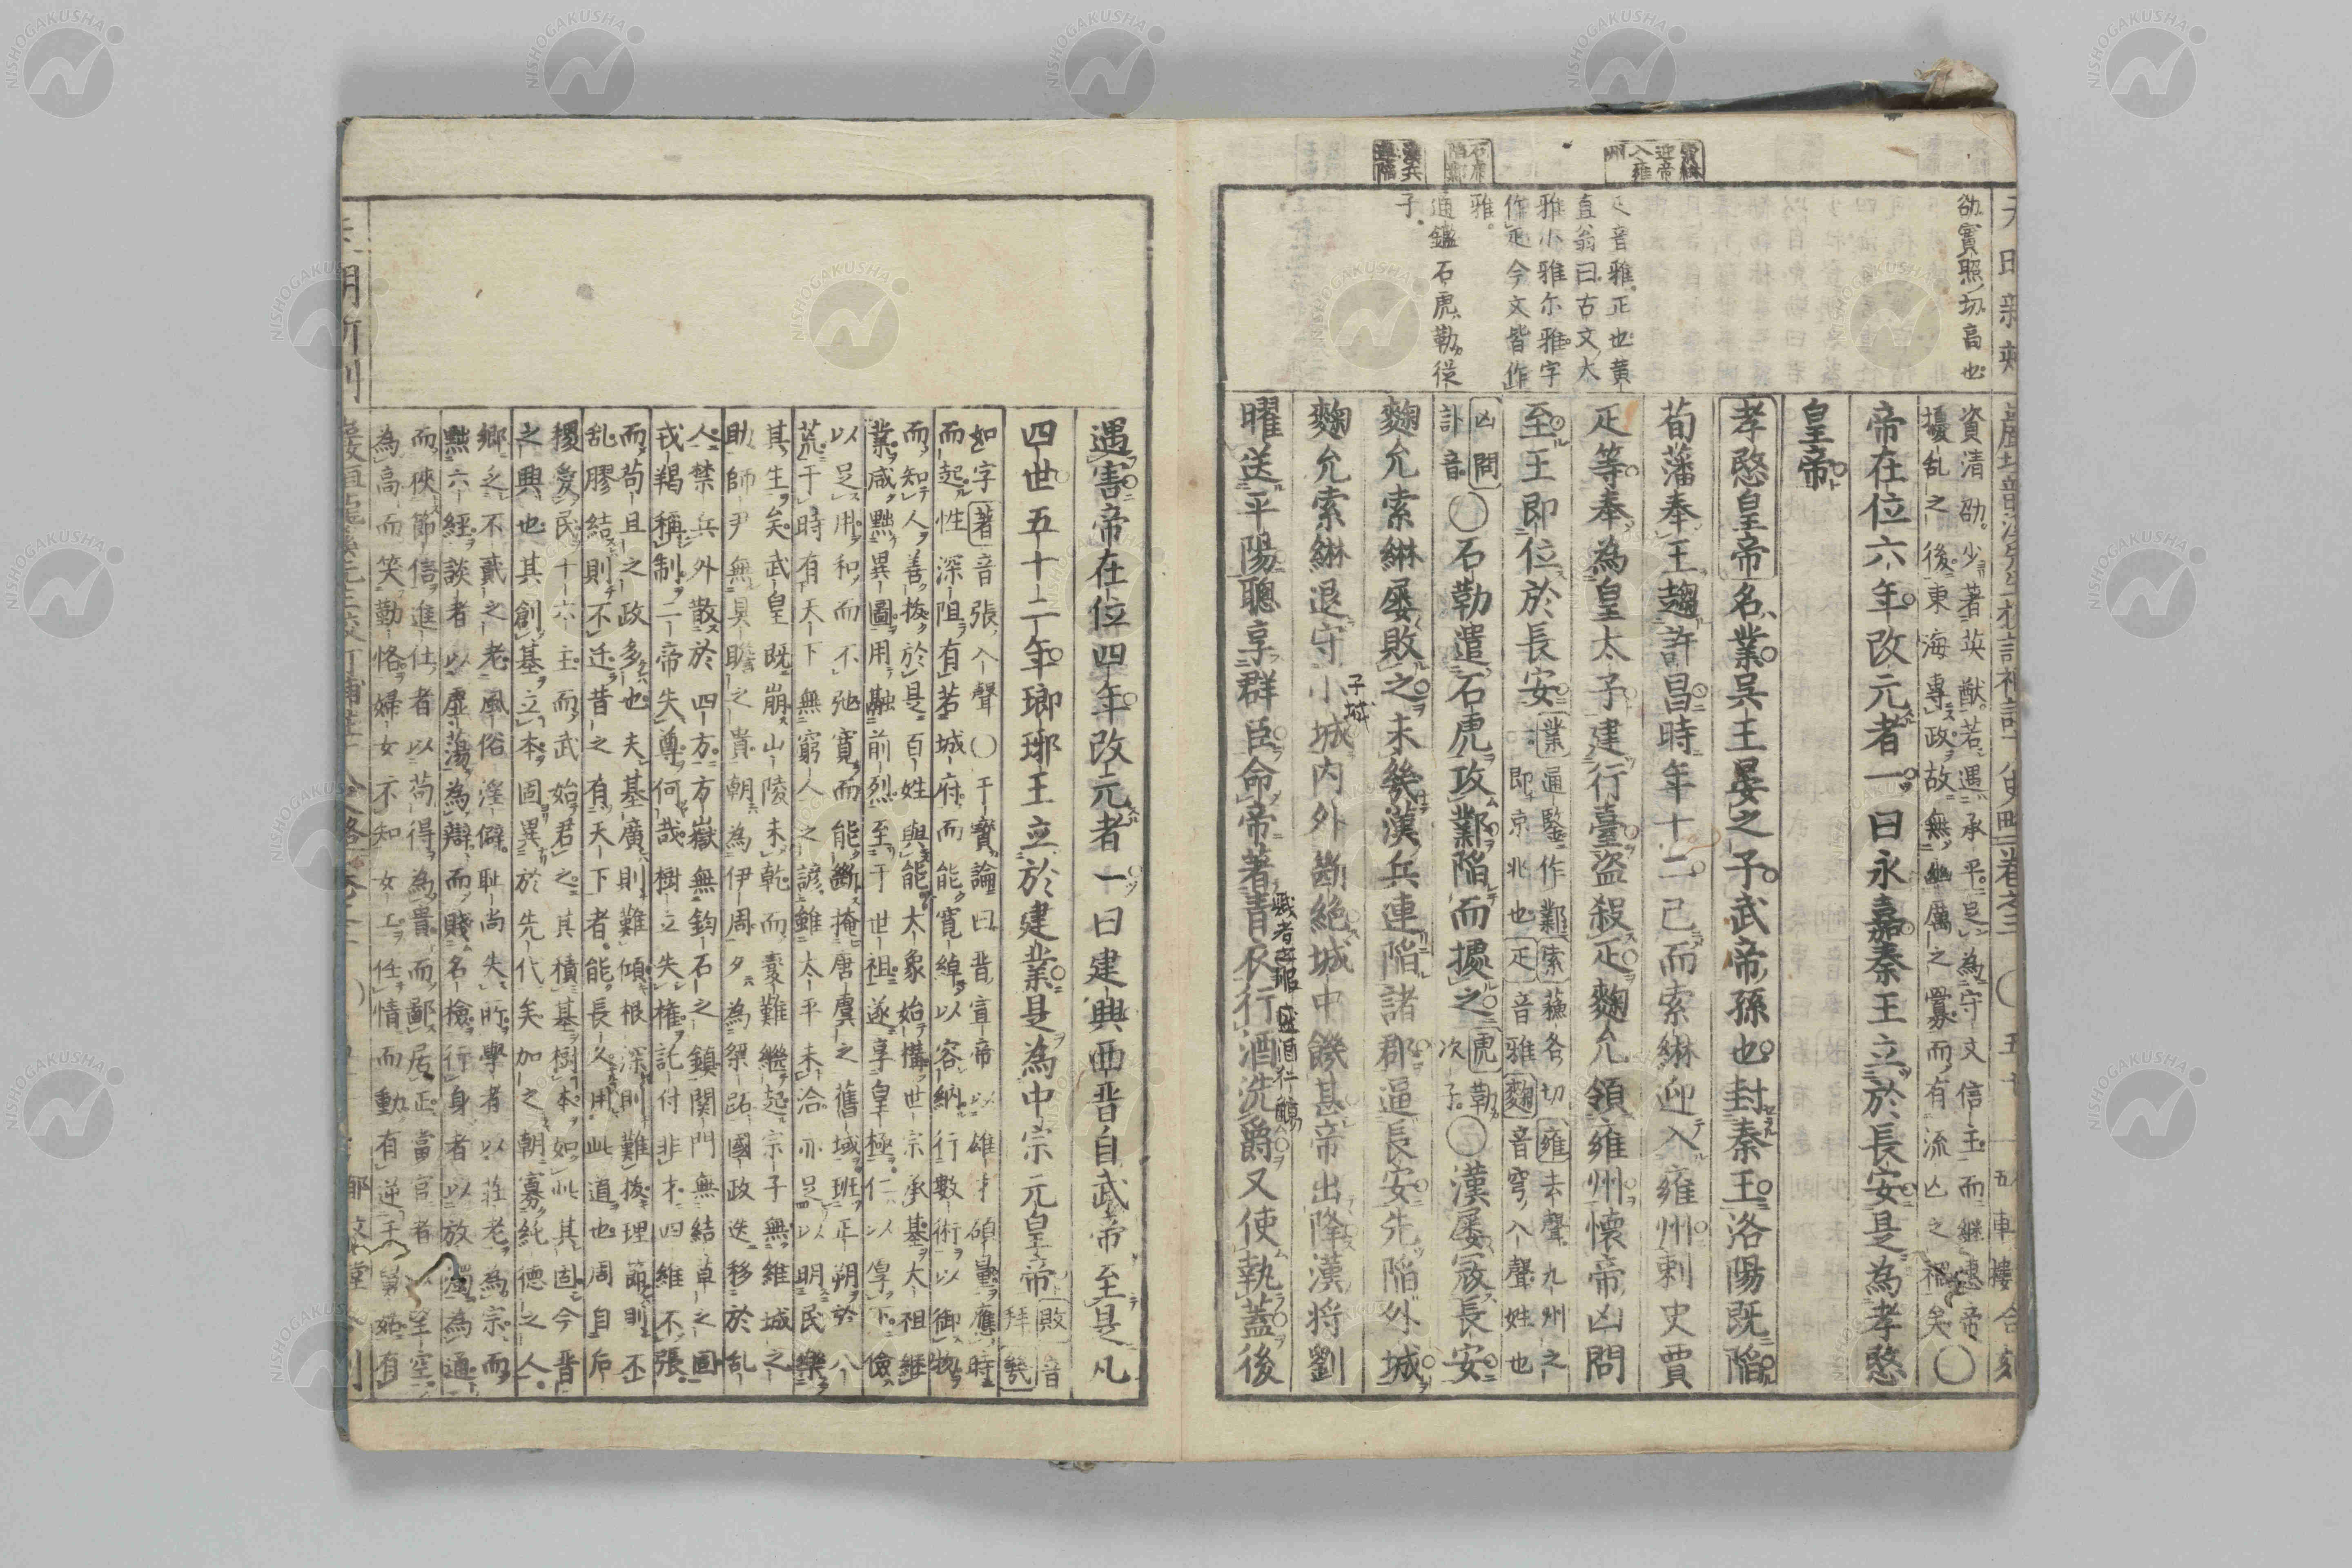 劭實照切高也
疋音雅正也黄
直翁曰古文大
雅小雅尓雅字
作疋今文皆作
雅
通鑑石虎勒從
子
資清劭少著英猷若遇承平足為守文信主而継惠帝
擾乱之後東海專政故無幽厲之釁而有流亡之禍矣〇
帝在位六年改元者一曰永嘉秦王立於長安是為孝愍
皇帝
孝愍皇帝名業呉王晏之子武帝孫也封秦王洛陽既陷
荀藩奉王趨許昌時年十二已而索綝迎入雍州刺史賈
疋等奉為皇太子建行臺盗殺疋麴允領雍州懷帝凶問
至王即位於長安業通鑒作鄴索蘇各切雍去聲九州之
即京兆也疋音雅麴音穹入聲姓也
凶問
訃音〇石勒遣石虎攻鄴陷而據之虎勒
次子〇漢屡寇長安
麴允索綝屡敗之未幾漢兵連陷諸郡逼長安先陷外城
麴允索綝退守小城内外断絶城中饑甚帝出降漢将劉
子城
曜送平陽聰享群臣命帝著青衣行酒洗爵又使執蓋後
遇害帝在位四年改元者一曰建興西晋自武帝至是凡
四世五十二年瑯琊王立於建業是為中宗元皇帝敗音
拜幾
如字著音張入聲〇干寳論曰晋宣帝以雄才碩量應時
而起性深阻有若城府而能寛綽以容納行數術以御物
而知人善抜於是百姓與能大象始搆世宗承基大祖継
業咸黜異圖用融前烈至于世祖遂享皇極仁以厚下儉
以足用和而不弛寛而能断掩唐虞之舊域班正朔於八
荒于時有天下無窮人之諺雖太平未洽亦足以明民樂
其生矣武皇既崩山陵未乾而變難継起宗子無維城之
助師尹無具瞻之貴朝為伊周夕為桀跖國政迭移於乱
人禁兵外散於四方方嶽無鈞石之鎮関門無結草之固
戎羯稱制二帝失尊何哉樹立失權託付非才四維不張
而苟且之政多也夫基廣則難傾根深則難抜理節則不
乱膠結則不迁昔之有天下者能長久用此道也周自后
稷愛民十六主而武始君之其積基樹本如此其固今晋
之興也其創基立本固異於先代矣加之朝寡純德之人
郷乏不貳之老風俗淫僻耻尚失所學者以莊老為宗而
黜六經談者以虚蕩為辯而賤名檢行身者以放濁為通
而狹節信進仕者以苟得為貴而鄙居正當官者以望空
為高而笑勤恪婦女不知女工任情而動有逆于舅姑有